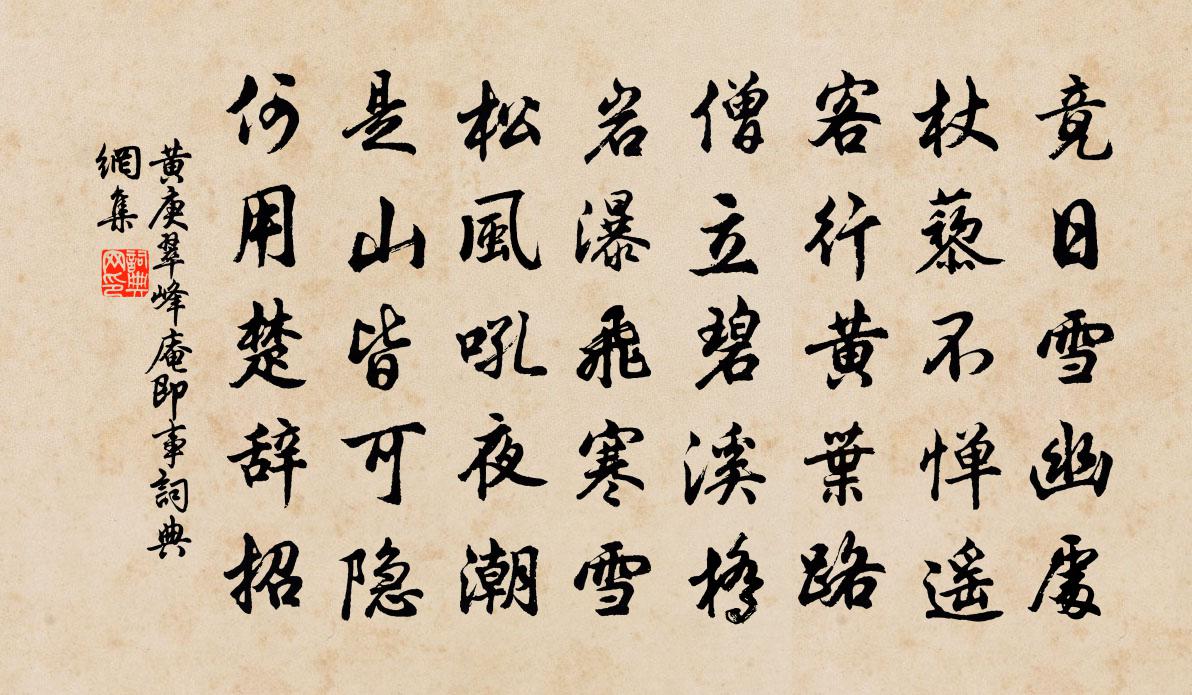 竟日雪幽處
杖藜不惮遥
客行黄葉路
僧立碧溪橋
岩瀑飛寒雪
松風吼夜潮
是山皆可隐
何用楚辞招
黄庚翠峰庵即事詞典
網集
詞典网印